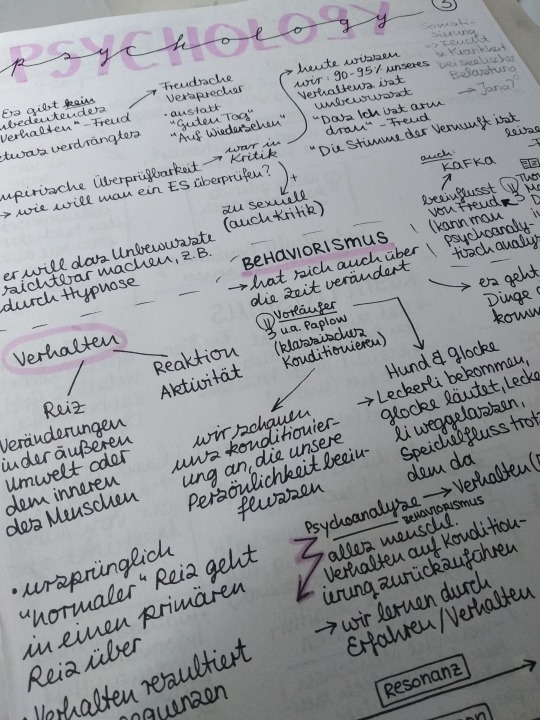 PSYCHOLOGY
psychology
3
Somati-
sierung
→ Flucht
in Krankheit
bei seelischer
Belastung
→ Jana?
Es gibt kein
unbedeutendes
Verhalten" - Freud
etwas verdrängtes
Freudsche
Versprecher
• anstatt
"Guten Tag"
"Auf Wiedersehen"
heute wissen
wir: 90-95% unseres
Verhaltens ist
unbewusst
"Das Ich ist arm
dran" - Freud
"Die Stimme der Vernunft ist
empirische Überprüfbarkeit → war in
Kritik
→ wie will man ein ES überprüfen?
+
zu sexuell
(auch Kritik)
auch:
KAFKA
beeinflusst
von Freud
(kann man
psychoanaly-
tisch analys
er will das Unbewusste
sichtbar machen, z.B.
durch Hypnose
BEHAVIORISMUS
→ hat sich auch über
die Zeit verändert
es geht
Dinge
komm
Vorläufer
u.a. Paplow
(klassisches
Konditionieren)
Verhalten
Reaktion
Aktivität
Reiz
Veränderungen
in der äußeren
Umwelt oder
dem inneren
des Menschen
wir schauen
uns konditionier-
ung an, die unsere
Persönlichkeit beein-
flussen
Hund & Glocke
→ Leckerli bekommen,
glocke läutet, Lecke
li weggelassen,
Speichelfluss trotz
dem da
Psychoanalyse → Verhalten
BEHAVIORISMUS
alles menschl.
Verhalten auf Kondition-
ierung zurückzuführen
→ wir lernen durch
Erfahren/Verhalten
• ursprünglich
"normaler" Reiz geht
in einen primären
Reiz über
• Verhalten resultiert
Resonanz